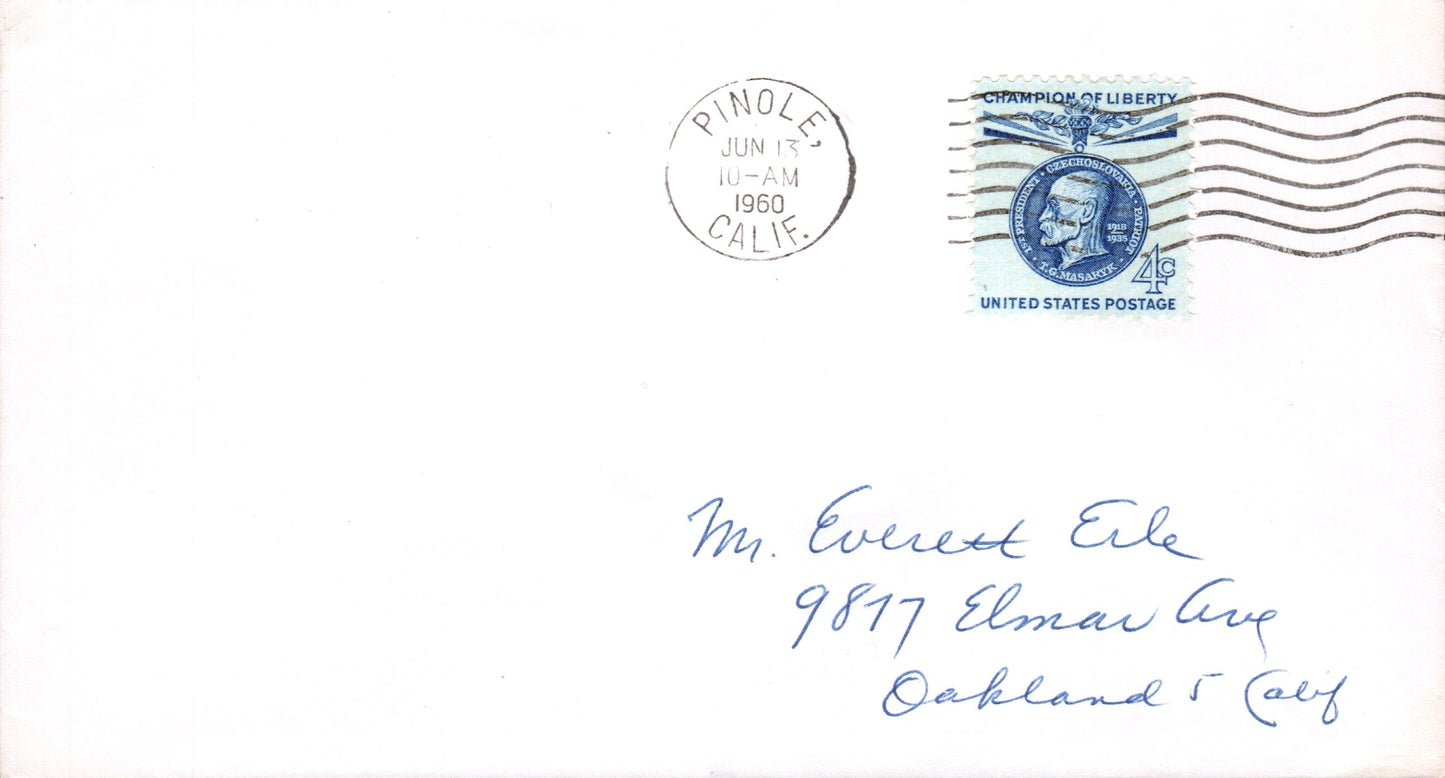 PINOLE,
JUN 13
10-AM
1960
CALIF.
CHAMPION OF LIBERTY
1ST PRESIDENT · CZECHOSLOVAKIA · PATRIOT
1918
1935
· T. G. MASARYK ·
4c
UNITED STATES POSTAGE
Mr. Everett Erle
9817 Elmar Ave
Oakland 5 Calif